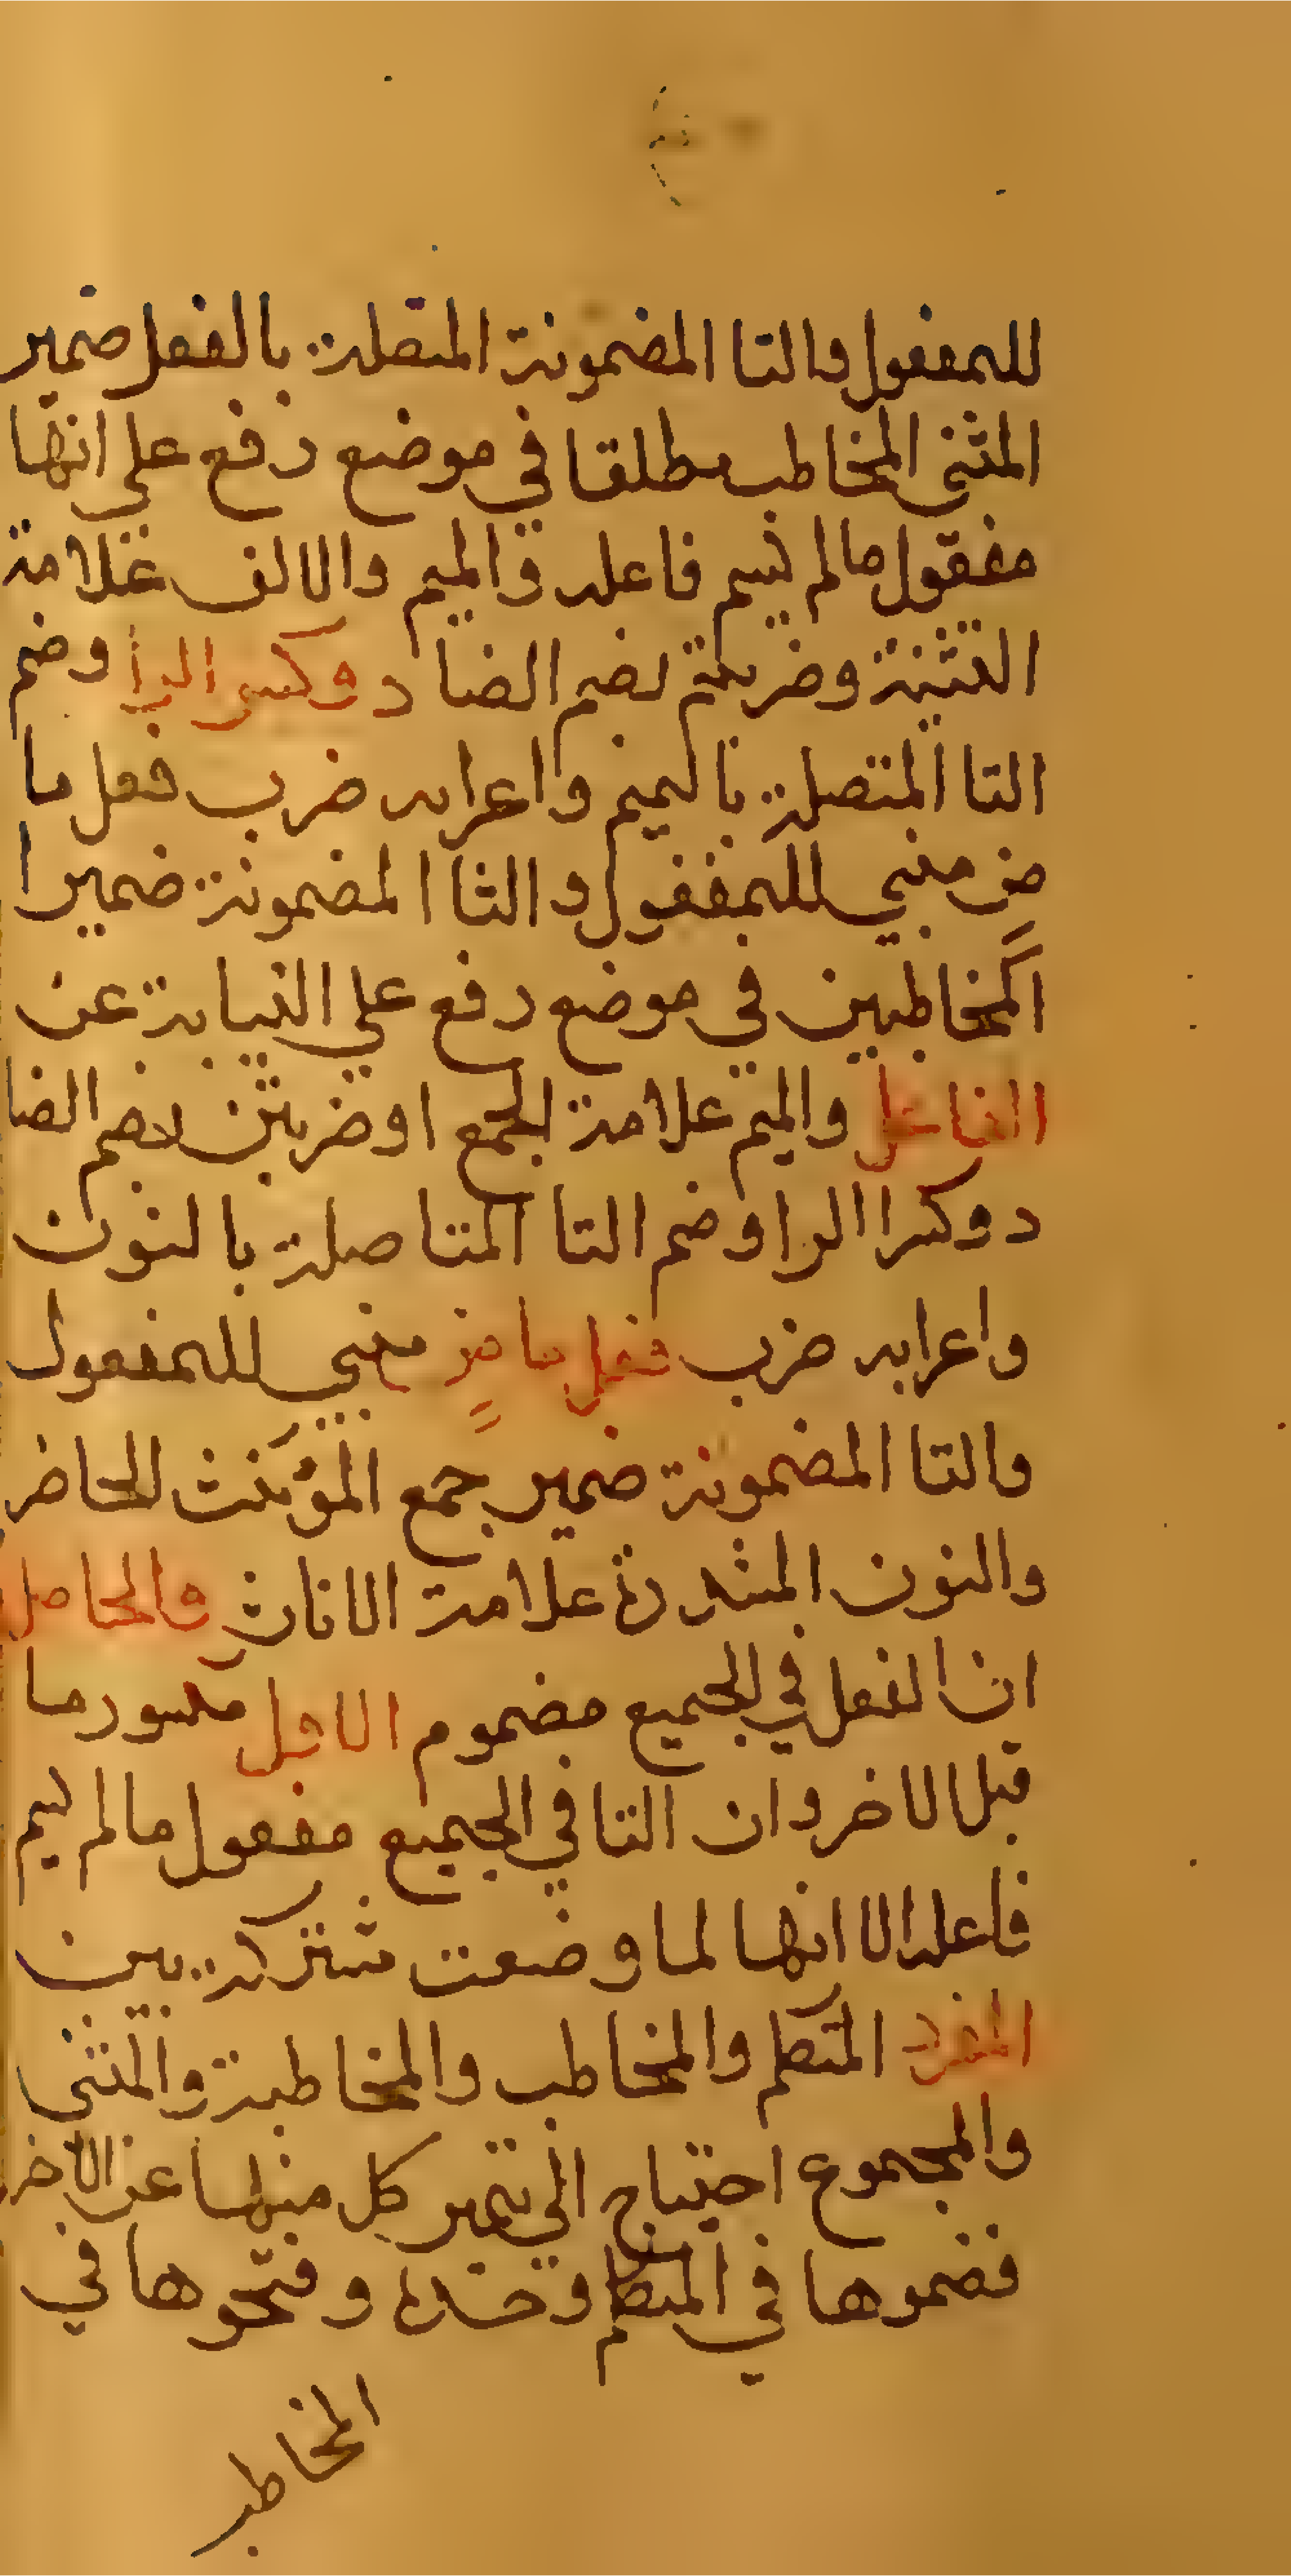 للمفعول والتا المضمونة المتصلة بالفعل ضمير
المثنى المخاطب مطلقا في موضع رفع على انها
مفعول مالم يسم فاعله والميم والالف علامة
التثنية وضربتم بضم الضاد وكسر الرا وضم
التا المتصلة بالميم واعرابه ضرب فعل ما
ضٍ مبني للمفعول والتا المضمونة ضمير ا
المخاطبين في موضع رفع علي النيابة عن
الفاعل والميم علامة الجمع اوضربتن بضم الضا
د وكسرا الرا وضم التا المتاصلة بالنون
واعرابه ضرب فعل ماضٍ مبني للمفعول
والتا المضمونة ضمير جمع المؤنث الحاضر
والنون المشددة علامة الاناث والحاصل
ان الفعل في الجميع مضموم الاول مكسور ما
قبل الاخر وان التا في الجميع مفعول مالم يسم
فاعله الا انها لما وضعت مشتركة بين
المفرد المتكلم والمخاطب والمخاطبة والمثنى
والمجموع احتياج الى تتميز كل منها عن الاخر
فضموها في المتكلم وحده وفتحوها في
المخاطب